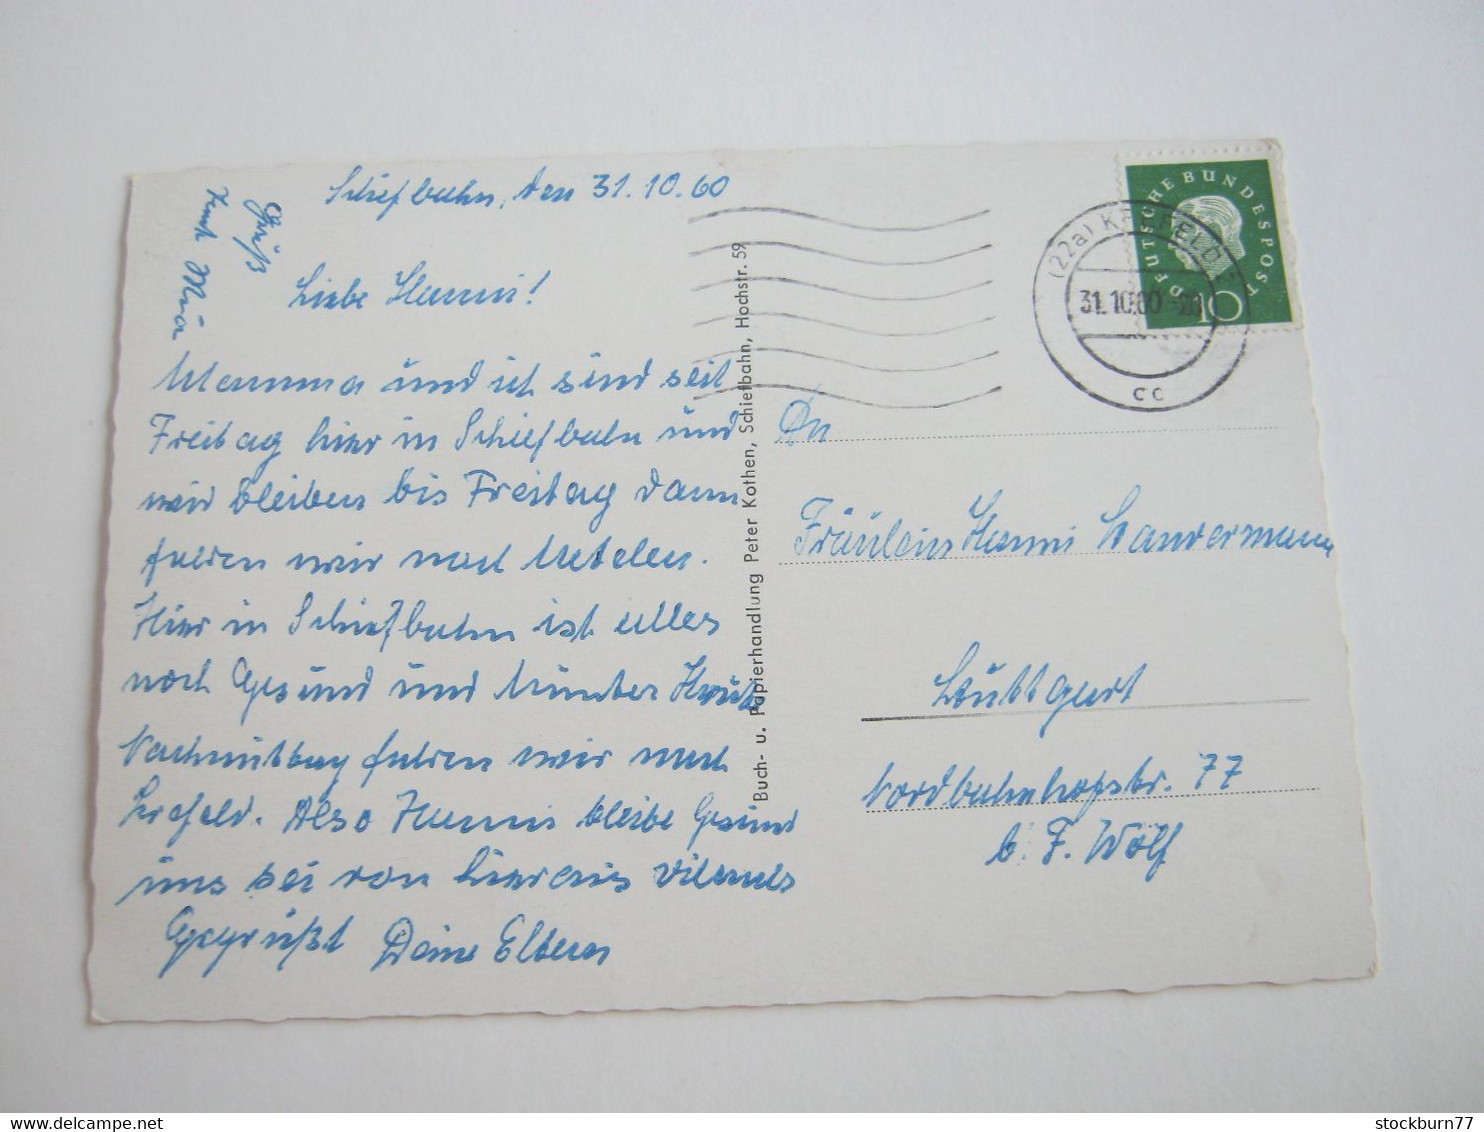 Schiefbahn, den 31.10.60
Gruß
Tante Mia
Liebe Hanni!
Mamma und ich sind seit
Freitag hier in Schiefbahn und
wir bleiben bis Freitag dann
fahren wir nach Metelen.
Hier in Schiefbahn ist alles
noch Gesund und Munter Heute
Nachmittag fahren wir nach
Krefeld. Also Hanni bleibe Gesund
uns sei von hieraus vilmals
Gegrüßt Deine Eltern
Buch- u. Papierhandlung Peter Kothen, Schiefbahn, Hochstr. 59
DEUTSCHE BUNDESPOST
10
(22a) KREFELD
31.10.60-20
cc
An
Fräulein Hanni
Stuttgart
Nordbahnhofstr. 77
b. F. Wolf
stockburn77